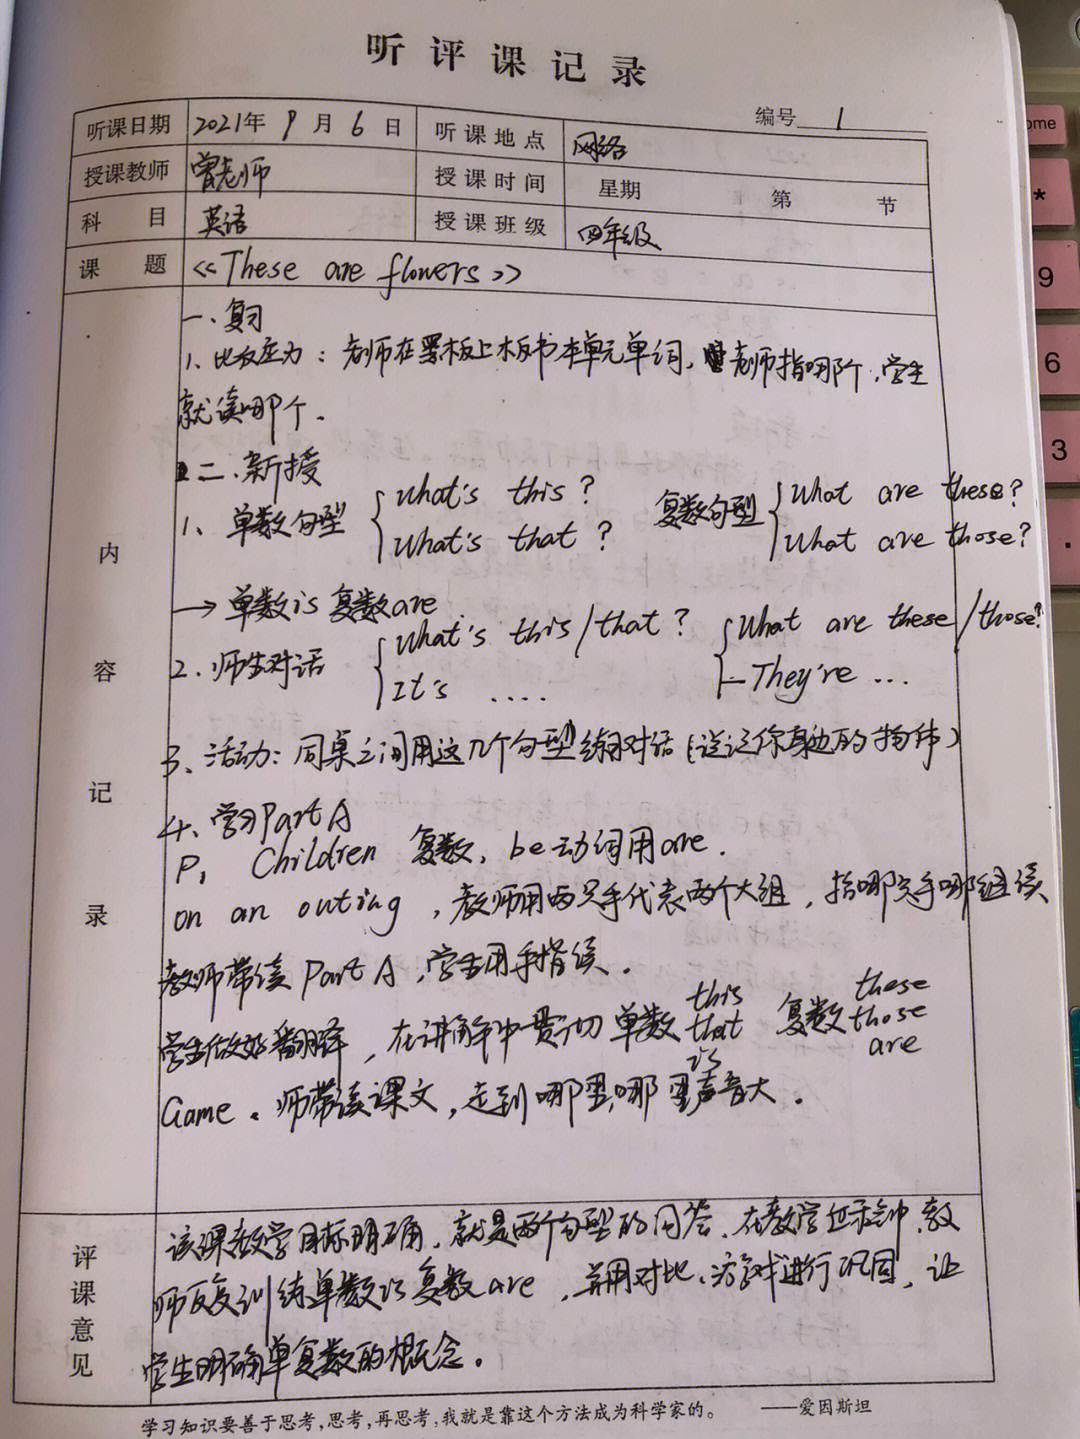 听评课记录
编号 1
听课日期 2021年 9 月 6 日 听课地点 网络
授课教师 曾老师 授课时间 星期 第 节
科目 英语 授课班级 四年级
课题 《These are flowers》
内容记录
一、复习
1、比反应力：老师在黑板上板书本单元单词，老师指哪个，学生
就读哪个。
二、新授
1、单数句型 { What's this? 复数句型 { What are these?
What's that? What are those?
→ 单数is 复数are
2、师生对话 { What's this/that? { What are these/those?
It's .... — They're ...
3、活动：同桌之间用这几个句型练习对话（说说你身边的物体）
4、学习Part A
P1 Children 复数，be动词用are.
on an outing，教师用两只手代表两个大组，指哪只手哪组读
教师带读 Part A，学生用手指读。
学生做好翻译，在讲解中贯切 单数 this that is 复数 these those are
Game。师带读课文，走到哪里，哪里声音大。
评课意见
该课教学目标明确，就是两个句型的问答，在教学过程中，教
师反复训练单数is复数are，并用对比、游戏进行巩固，让
学生明确单复数的概念。
学习知识要善于思考,思考,再思考,我就是靠这个方法成为科学家的。 ——爱因斯坦
ome
*
9
6
3
.